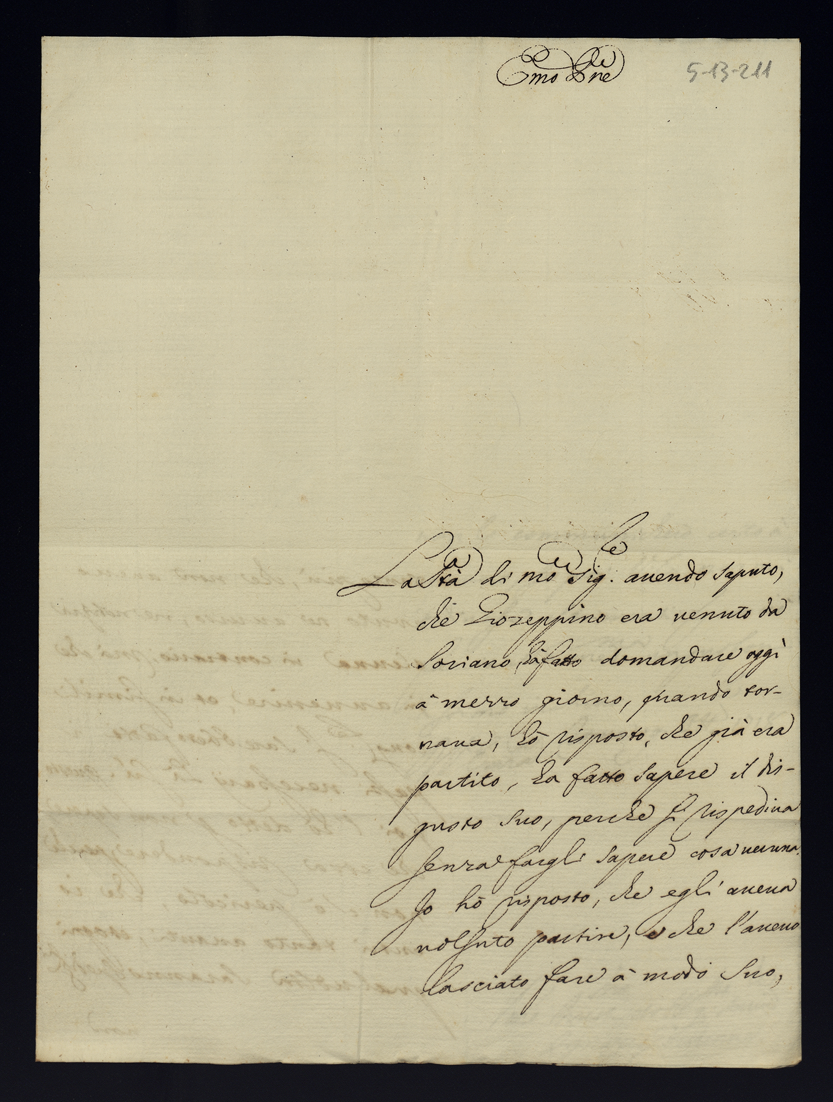 Emo Pne
5-13-211
La Stà di mo Sig.re auendo saputo,
che Giozeppino era uenuto da
Soriano, hà fatto domandare oggi
à mezzo giorno, quando tor-
naua, hò risposto, che già era
partito, ha fatto sapere il dis-
gusto suo, perche si rispediua
senza fargli sapere cosa ueruna.
Io hò risposto, che egli aueua
uolsuto partire, e che l'aueuo
lasciato fare à modo suo,